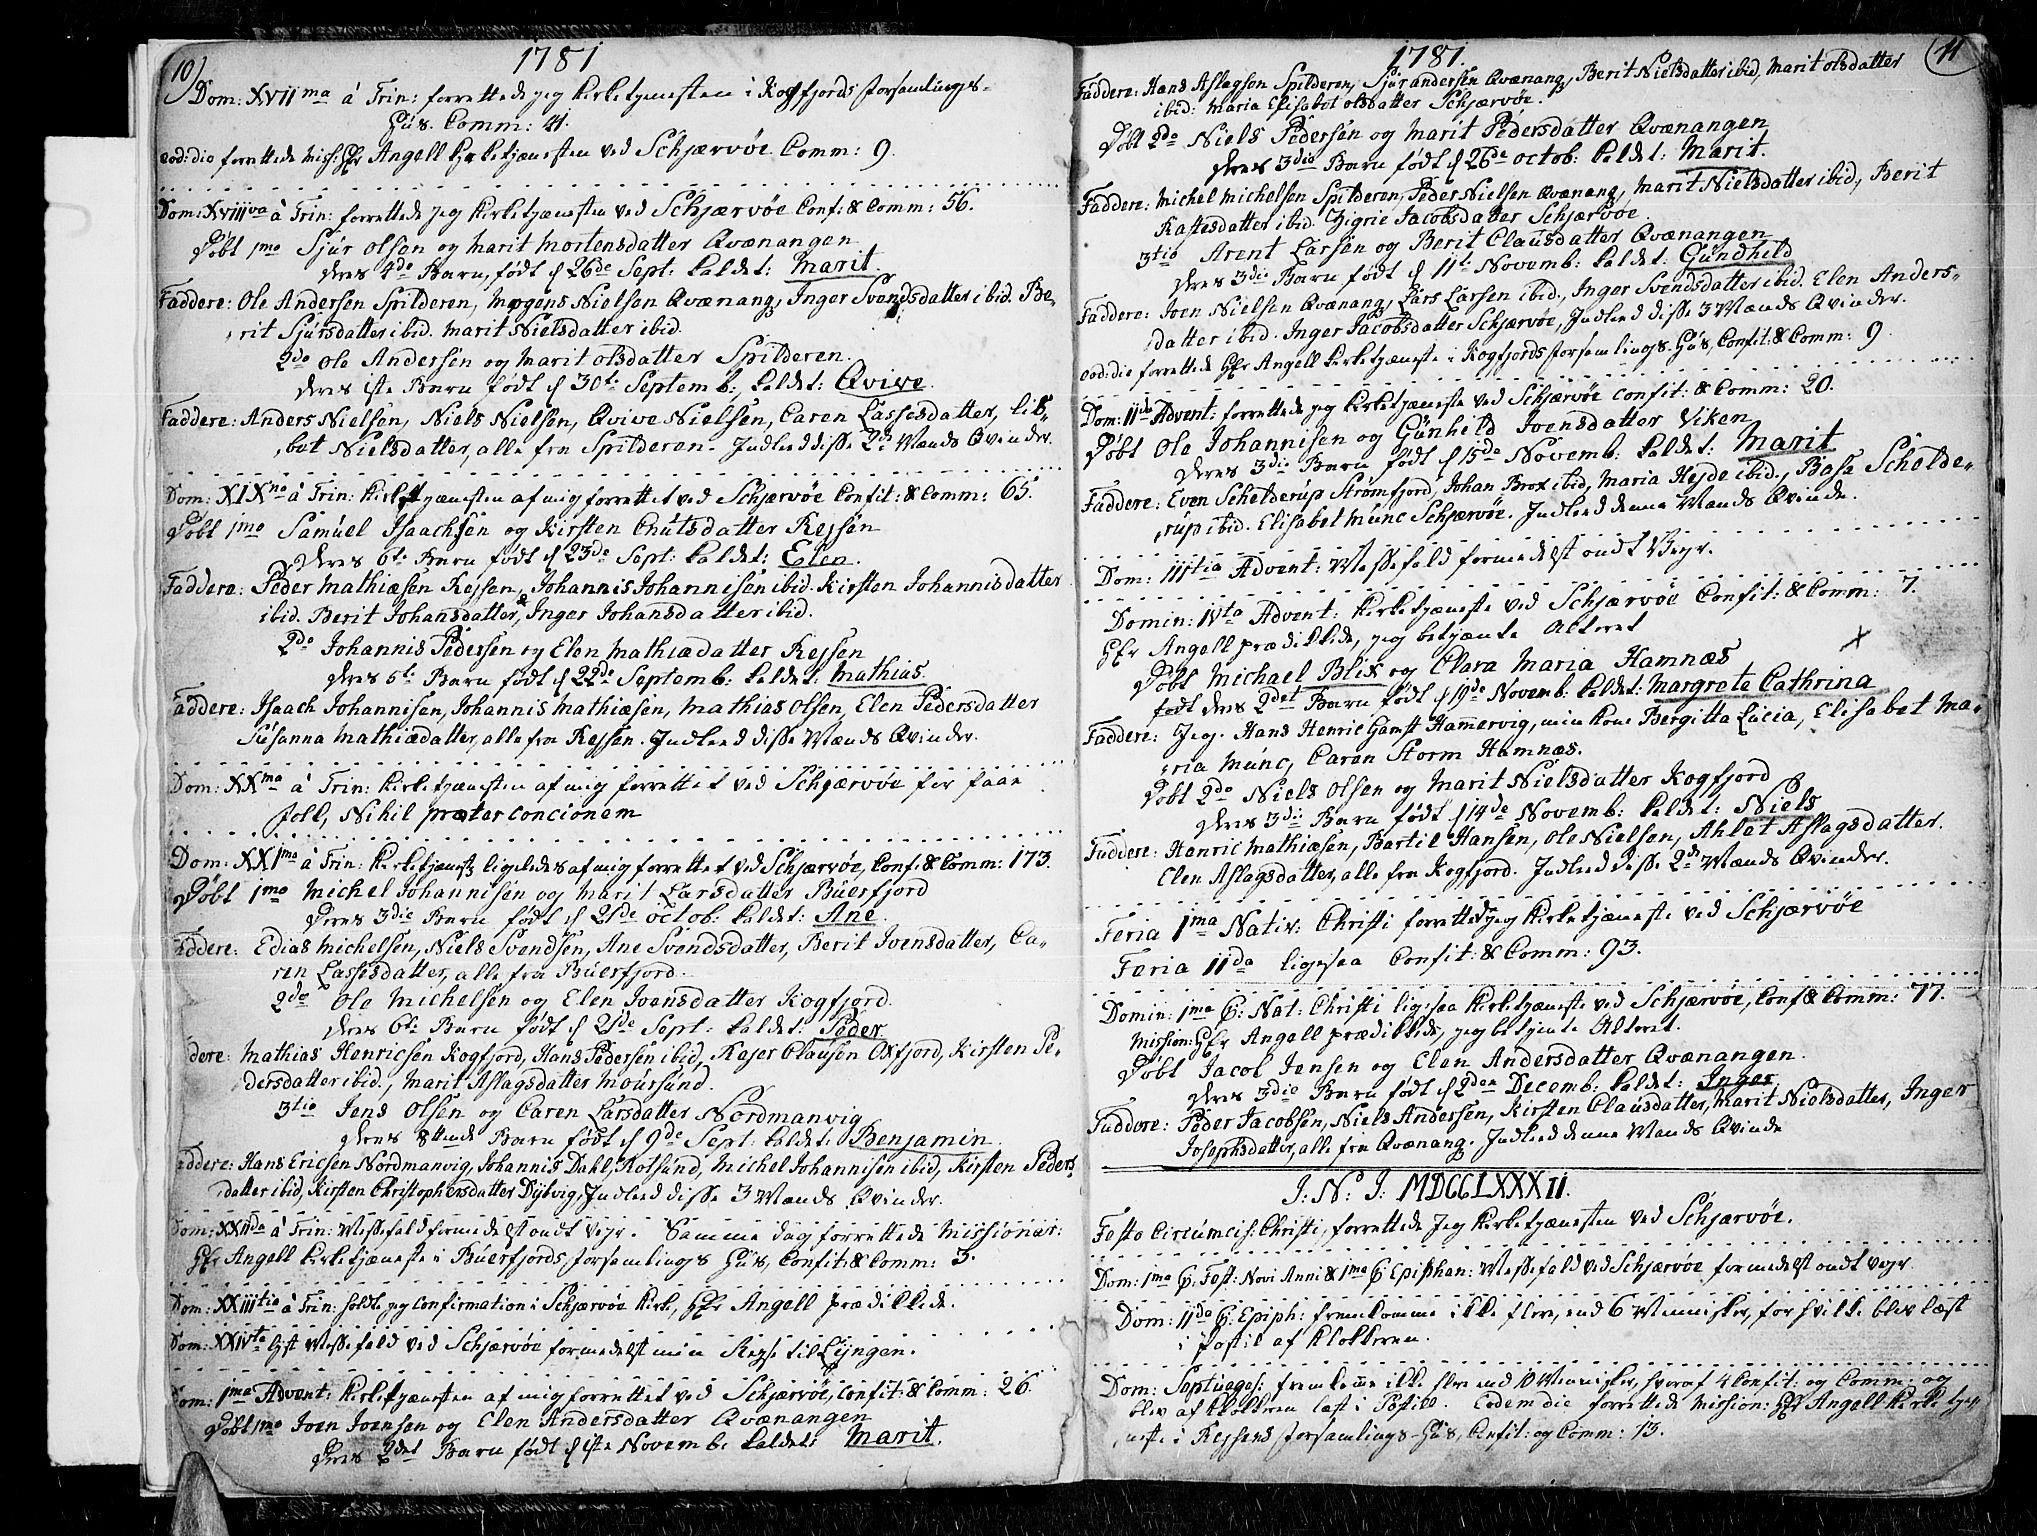 10)
1781
Dom: XVIIma á Trin: forrettede jeg Kirketjenesten i Kogfjords forsamlings-
Huus. Comm: 41.
eod: die forrettede miss: Hr Angell Kirketjænesten ved Schjærvöe. Comm: 9.
Dom: XVIIIva á Trin: forrettede jeg Kirketjænesten ved Schjærvöe Conf: & Comm: 56.
Döbt 1mo Sjur Olsen og Marit Mortensdatter Qvænangen
deres 4de Barn, födt d 26de Sept: kaldet: Marit.
Faddere: Ole Andersen Spilderen, Mogens Nielsen Qvænang, Inger Svendsdatter ibid. Be-
rit Sjursdatter ibid. Marit Nielsdatter ibid.
2do Ole Andersen og Marit Olsdatter Spilderen.
deres 1ste Barn födt d 30te Septemb: kaldet: Qvive.
Faddere: Anders Nielsen, Niels Nielsen, Qvive Nielsen, Caren Lassesdatter, Lis-
bet Nielsdatter, alle fra Spilderen. Indleed disse 2de Mænds Qvinder.
Dom: XIXno á Trin: Kirketjænesten af mig forrettet ved Schjærvöe Confit: & Comm: 65.
Döbt 1mo Samuel Isaachsen og Kirsten Cnutsdatter Rejsen
Deres 6te Barn födt d 23de Sept: kaldet: Elen.
Faddere: Peder Mathiæsen Rejsen, Johannis Johannisen ibid. Kirsten Johannisdatter
ibid. Berit Johansdatter, & Inger Johansdatter ibid.
2do Johannis Pedersen og Elen Mathiædatter Rejsen
deres 5te Barn födt d 22de Septemb: kaldet: Mathias.
Faddere: Isaach Johannisen, Johannis Mathiæsen, Mathias Olsen, Elen Pedersdatter
Susanna Mathiædatter, alle fra Rejsen. Indleed disse Mænds Qvinder.
Dom: XXma á Trin: Kirketjænesten af mig forrettet ved Schjærvöe for faae
folk, Nihil præter concionem
Dom: XXIma á Trin: Kirketjæneste ligeledes af mig forrettet ved Schjærvöe, Conf: & Comm: 173.
Döbt 1mo Michel Johannisen og Marit Larsdatter Buerfjord
Deres 3die Barn födt d 21de Octob: kaldet: Ane.
Faddere: Edias Michelsen, Niels Svendsen, Ane Svendsdatter, Berit Ivensdatter, Ca-
ren Lassesdatter, alle fra Buerfjord.
2do Ole Michelsen og Elen Ivensdatter Kogfjord.
deres 6te Barn födt d 21de Sept: kaldet: Peder
dere: Mathias Henricsen Kogfjord, Hans Pedersen ibid, Rejer Clausen Oxfjord, Kirsten Pe-
dersdatter ibid., Marit Aslagsdatter Moursund.
3tio Jens Olsen og Caren Larsdatter Nordmanvig
deres 8ttende Barn födt d 9de Sept: kaldet: Benjamin.
addere: Hans Ericsen Nordmanvig, Johannis Dahl, Rotsund, Michel Johannisen ibid, Kirsten Peders
datter ibid, Kirsten Christophersdatter Dÿbvig, Indleed disse 3 Mænds Qvinder.
Dom: XXIIda á Trin: Messefald formedelst ondt vejr. Samme dag forrettede Missionar:
Hr Angell Kirketjæneste i Buerfjords forsamlings Huus, Confit: & Comm: 3.
Dom: XXIIItia á Trin: holdt jeg Confirmation i Schjærvöe Kirke, Hr Angell prædikkede.
Dom: XXIVta hst Messefald ved Schjærvöe formedelst min Rejse til Lÿngen.
Dom: 1ma Advent: Kirketjænesten af mig forrettet ved Schjærvöe, Confit: & Comm: 26.
Döbt 1mo Iven Ivensen og Elen Andersdatter Qvænangen
Deres 2det Barn födt d 1ste Novemb: kaldet: Marit.
1781.
11
Faddere: Hans Aslagsen Spilderen, Sjur Andersen Qvænang, Berit Nielsdatter ibid, Marit Olsdatter
ibid: Maria Elisabet Olsdatter Schjærvöe.
Döbt 2do Niels Pedersen og Marit Pedersdatter Qvænangen
deres 3die Barn födt d 26de Octob: kaldet: Marit.
Faddere: Michel Michelsen Spilderen, Peder Nielsen Qvænang, Marit Nielsdatter ibid, Berit
Rastesdatter ibid. Zigrie Jacobsdatter Schjærvöe.
3tio Arent Larsen og Berit Clausdatter Qvænangen
deres 3die Barn födt d 11te Novemb: kaldet: Gundhild
Faddere: Iven Nielsen Qvænang, Lars Larsen ibid., Inger Svendsdatter ibid. Elen Anders-
datter ibid. Inger Jacobsdatter Schjærvöe, Indleed disse 3 Mænds Qvinder.
eod: die forrettede Hr Angell Kirketjæneste i Kogfjords forsamlings Huus, Confit: & Comm: 9
Dom: IIda Advent: forrettede jeg Kirketjæneste ved Schjærvöe Confit: & Comm: 20.
Döbt Ole Johannisen og Gunhild Ivensdatter Viken
Deres 3die Barn födt d 15de Novemb: kaldet: Marit
Faddere: Even Schelderup Strømfjord, Johan Brox ibid, Maria Hejde ibid., Basa Schelde-
rup ibid. Elisabet Munc Schjærvöe. Indleed denne Mands Qvinde.
Dom: IIItia Advent: Messefald formedelst ondt Vejr.
Domin: IVta Advent: Kirketjæneste ved Schjærvöe Confit: & Comm: 7.
Hr Angell prædikkede, jeg betjænte Alteret
Döbt Michael Blix og Clara Maria Hamnæs
födt deres 2det Barn födt d 19de Novemb: kaldet: Margrete Cathrina
Faddere: Jeg. Hans Henric Gamst Hamervig, min Kone Bergitta Lucia, Elisabet Ma-
ria Munc, Caren Storm Hamnæs.
Döbt 2do Niels Olsen og Marit Nielsdatter Kogfjord
deres 3die Barn födt d 14de Novemb: kaldet: Niels
Faddere: Hanric Mathiæsen, Bertil Hansen, Ole Nielsen, Ahlet Aslagsdatter.
Elen Aslagsdatter, alle fra Kogfjord. Indleed disse 2de Mænds Qvinder.
Feria 1ma Nativ: Christi forrettede jeg Kirketjæneste ved Schjærvöe
Feria IIda ligesaa Confit: & Comm: 93.
Domin: 1ma p: Nat: Christi ligesaa Kirketjæneste ved Schjærvöe, Conf & Comm: 77.
Mission: Hr Angell prædikkede, jeg betjente Alteret.
Döbt Jacob Jensen og Elen Andersdatter Qvænangen.
deres 3die Barn födt d 2den Decemb: kaldet: Inger
Faddere: Peder Jacobsen, Niels Andersen, Kirsten Clausdatter, Marit Nielsdatter, Inger
Josephsdatter, alle fra Qvænang. Indleed denne Mands Qvinde
I: N: J: MDCCLXXXII.
Festo Circumcis: Christi, forrettede jeg Kirketjænesten ved Schjærvöe.
Dom: 1ma p: Fest: Novi Anni & 1ma p Epiphan: Messefald ved Schjærvöe formedelst ondt vejr.
Dom: IIda p: Epiph: fremkomme ikke flere, end 6 Mennisker, for hvilke blev læst
i Postil af Klokkeren.
Dom: Septuages: fremkomme ikke flere end 10 Mennisker, hvoraf 4 Confit: og Comm: og
blev af Klokkeren læst i Postill. Eodem die forrettede Mission: Hr Angell Kirketjæ-
neste i Rejsens forsamlings-Huus, Confit: og Comm: 13.